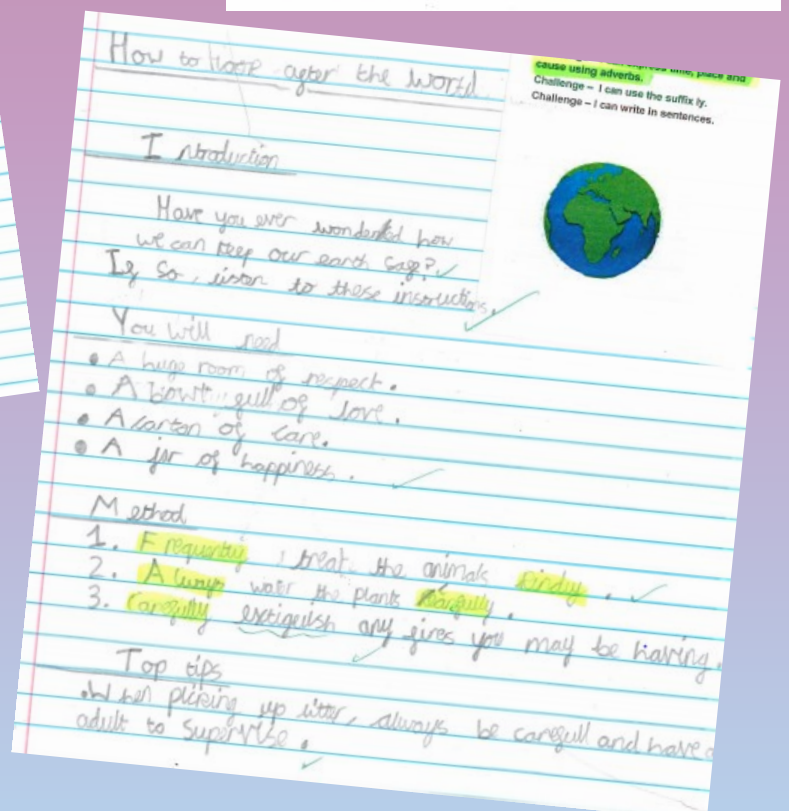 How to look after the world.
cause using adverbs.
Challenge – I can use the suffix ly.
Challenge – I can write in sentences.
Introduction
Have you ever wondered how
we can keep our earth safe?
If so, listen to these instructions.
You will need
• A huge room of respect.
• A bowl full of love.
• A carton of care.
• A jar of happiness.
Method
1. Frequently, treat the animals kindly.
2. Always water the plants
3. Carefully extiguish any fires you may be having.
Top tips
• When picking up litter, always be carefull and have a
adult to supervise.